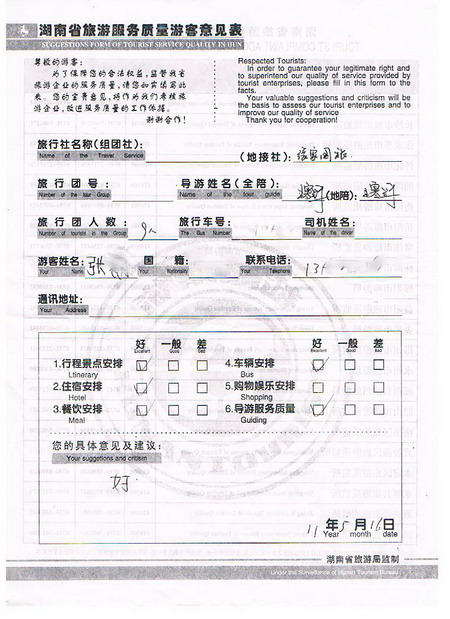 湖南省旅游服务质量游客意见表
SUGGESTIONS FORM OF TOURIST SERVICE QUALITY IN HUN
尊敬的游客:
为了保障您的合法权益,监督我省
旅游企业的服务质量,请您如实填写此
表。您的宝贵意见,将作为我们考核旅
游企业,改进服务质量的工作依据。
谢谢合作!
Respected Tourists:
In order to guarantee your legitimate right and
to superintend our quality of service provided by
tourist enterprises, please fill in this form to the
facts.
Your valuable suggestions and criticism will
be the basis to assess our tourist enterprises and to
improve our quality of service
Thank you for cooperation!
旅行社名称(组团社):
Name of the Travel Service
(地接社):
旅行团号:
Number of the tour Group
导游姓名(全陪):
Name of the tour guide
(地陪)
旅行团人数:
Number of tourists in the Group
9人
旅行车号:
The Bus Number
司机姓名:
Name of the driver
游客姓名:
Your Name
张
国籍:
Your Nationality
联系电话:
Your Telephone
13
通讯地址:
Your Address
好 一般 差 好 一般 差
Excellent Good Bad Excellent Good Bad
1.行程景点安排 4.车辆安排
Ltinerary Bus
2.住宿安排 5.购物娱乐安排
Hotel Shopping
3.餐饮安排 6.导游服务质量
Meal Guiding
您的具体意见及建议:
Your suggetions and critism
好
11年5月16日
Year month date
湖南省旅游局监制
Under the Surveillance of Hunan Tourism Bureau